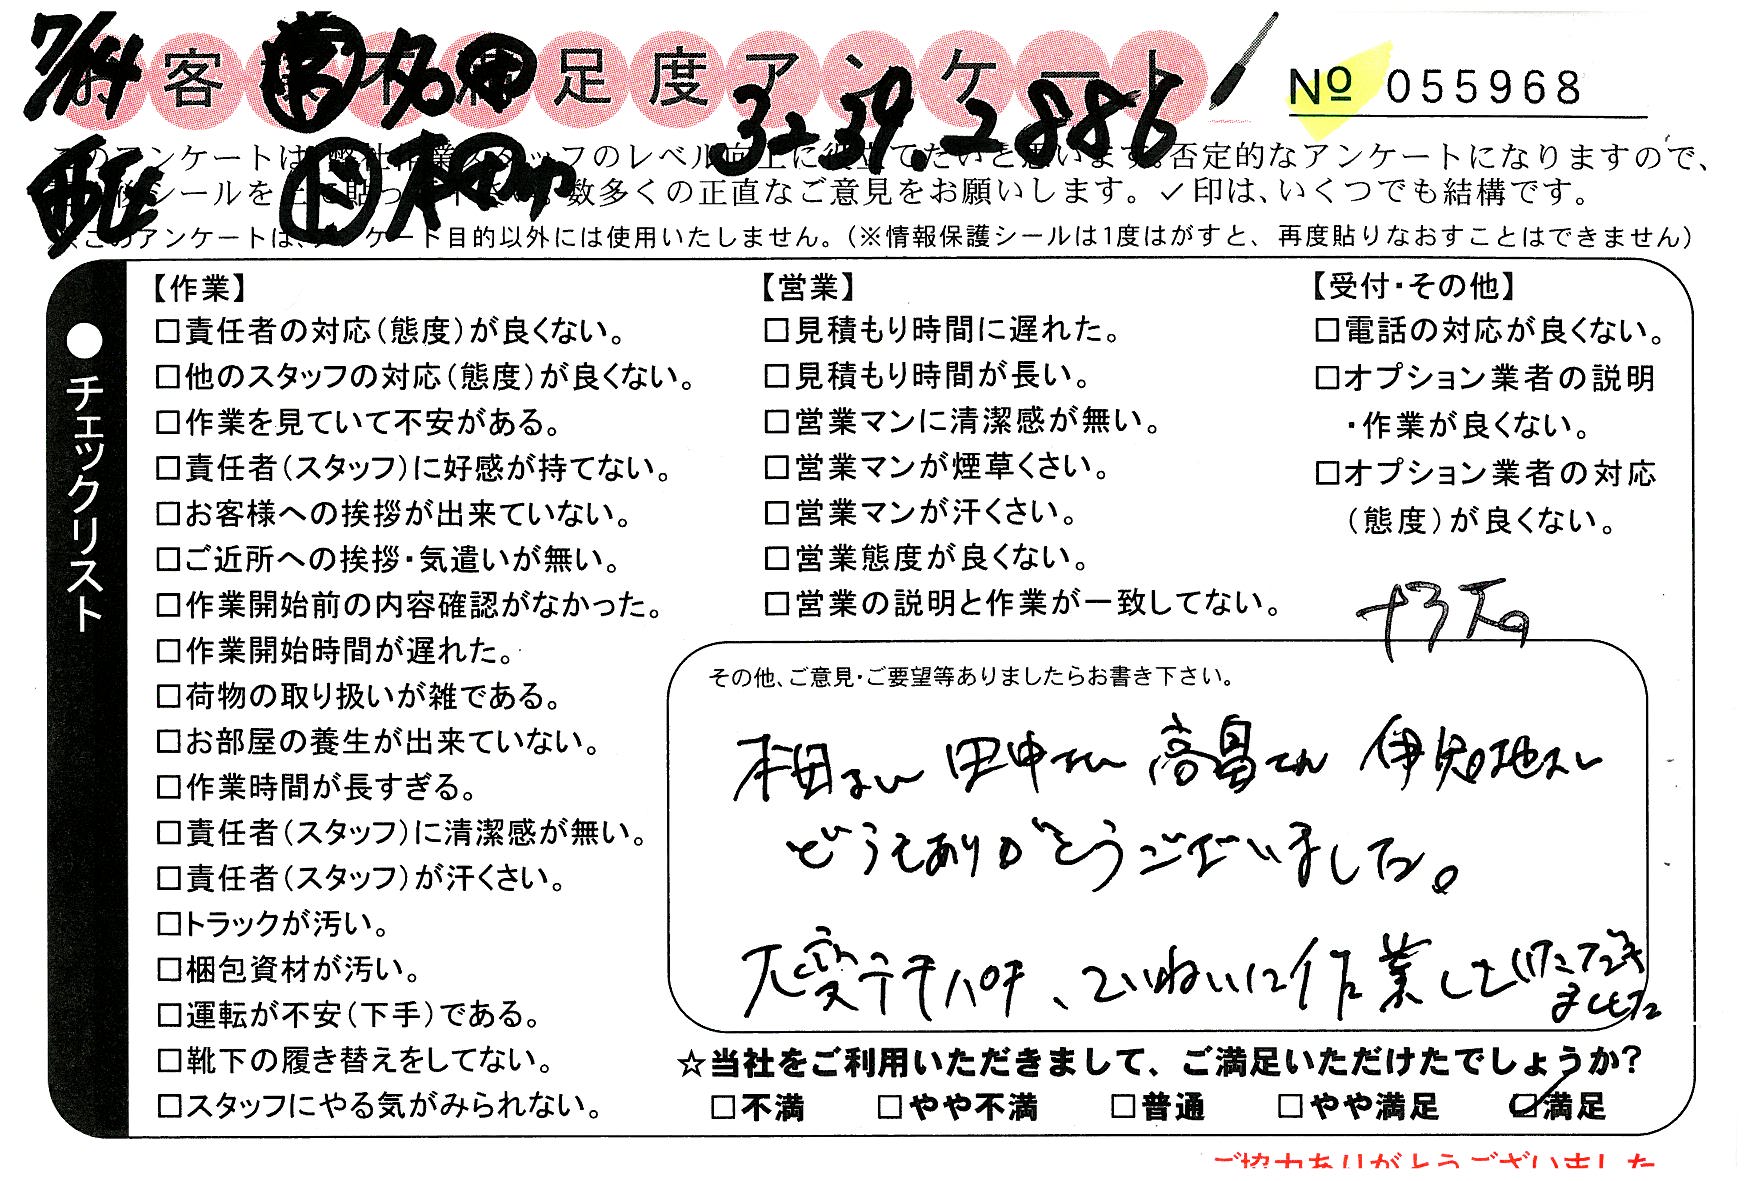 7/14
お客様不満足度アンケート
№ 055968
3-39.2886
このアンケートは、弊社作業スタッフのレベル向上に役立てたいと思います。否定的なアンケートになりますので、
シールを上に貼って下さい。数多くの正直なご意見をお願いします。✓印は、いくつでも結構です。
※このアンケートは、アンケート目的以外には使用いたしません。（※情報保護シールは1度はがすと、再度貼りなおすことはできません）
●チェックリスト
【作業】
□責任者の対応（態度）が良くない。
□他のスタッフの対応（態度）が良くない。
□作業を見ていて不安がある。
□責任者（スタッフ）に好感が持てない。
□お客様への挨拶が出来ていない。
□ご近所への挨拶・気遣いが無い。
□作業開始前の内容確認がなかった。
□作業開始時間が遅れた。
□荷物の取り扱いが雑である。
□お部屋の養生が出来ていない。
□作業時間が長すぎる。
□責任者（スタッフ）に清潔感が無い。
□責任者（スタッフ）が汗くさい。
□トラックが汚い。
□梱包資材が汚い。
□運転が不安（下手）である。
□靴下の履き替えをしてない。
□スタッフにやる気がみられない。
【営業】
□見積もり時間に遅れた。
□見積もり時間が長い。
□営業マンに清潔感が無い。
□営業マンが煙草くさい。
□営業マンが汗くさい。
□営業態度が良くない。
□営業の説明と作業が一致してない。
【受付・その他】
□電話の対応が良くない。
□オプション業者の説明
・作業が良くない。
□オプション業者の対応
（態度）が良くない。
その他、ご意見・ご要望等ありましたらお書き下さい。
さん 田中さん 高畠さん 伊知地さん
どうもありがとうございました。
大変テキパキ、ていねいに作業していただき
ました
☆当社をご利用いただきまして、ご満足いただけたでしょうか？
□不満 □やや不満 □普通 □やや満足 ☑満足
ご協力ありがとうございました